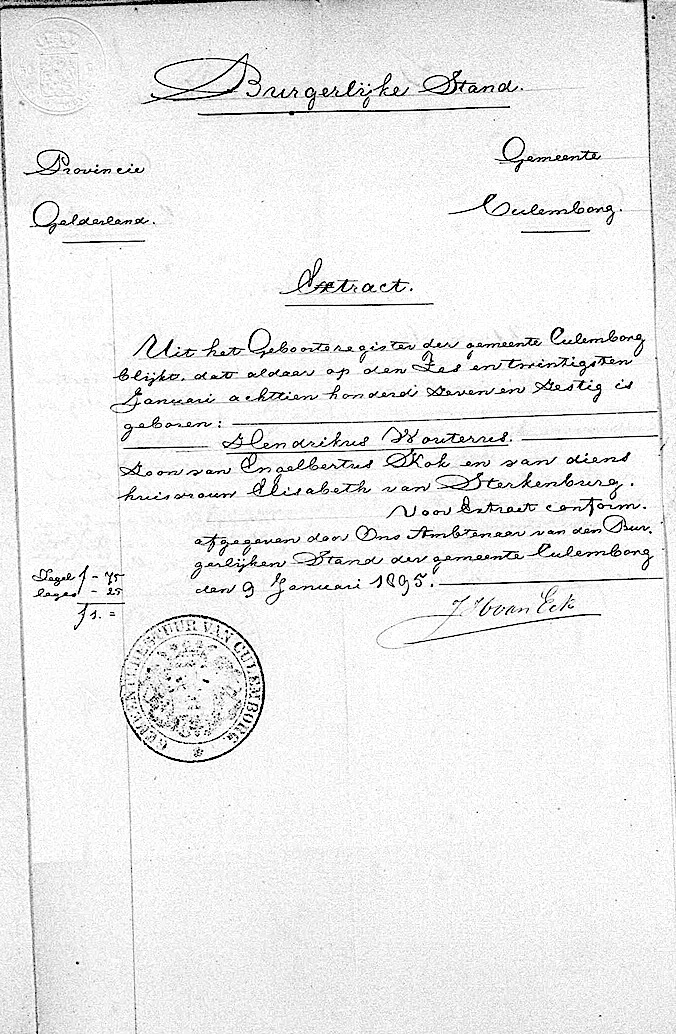 Burgerlijke Stand.
Provincie
Gelderland.
Gemeente
Culemborg.
Extract.
Uit het Geboorteregister der gemeente Culemborg
blijkt, dat aldaar op den Zes en twintigsten
Januari achttien honderd Zeven en Zestig is
geboren:
Hendrikus Wouterus.
Zoon van Engelbertus Kok en van diens
huisvrouw Elisabeth van Sterkenburg.
Voor Extract conform.
afgegeven door Ons Ambtenaar van den Bur-
gerlijken Stand der gemeente Culemborg
den 9 Januari 1895.
Zegel f - 75
leges - 25
f 1. =
van Eck
GEMEENTEBESTUUR VAN CULEMBORG